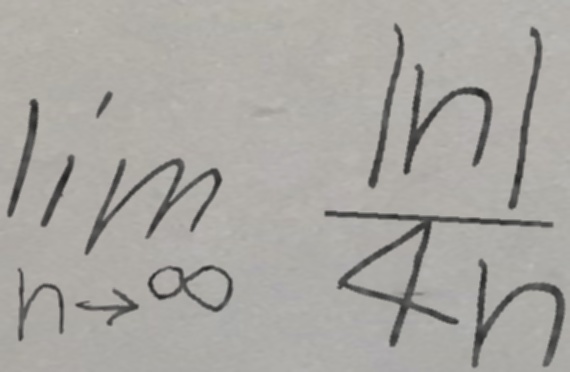 lim |n|
n→∞ 4n